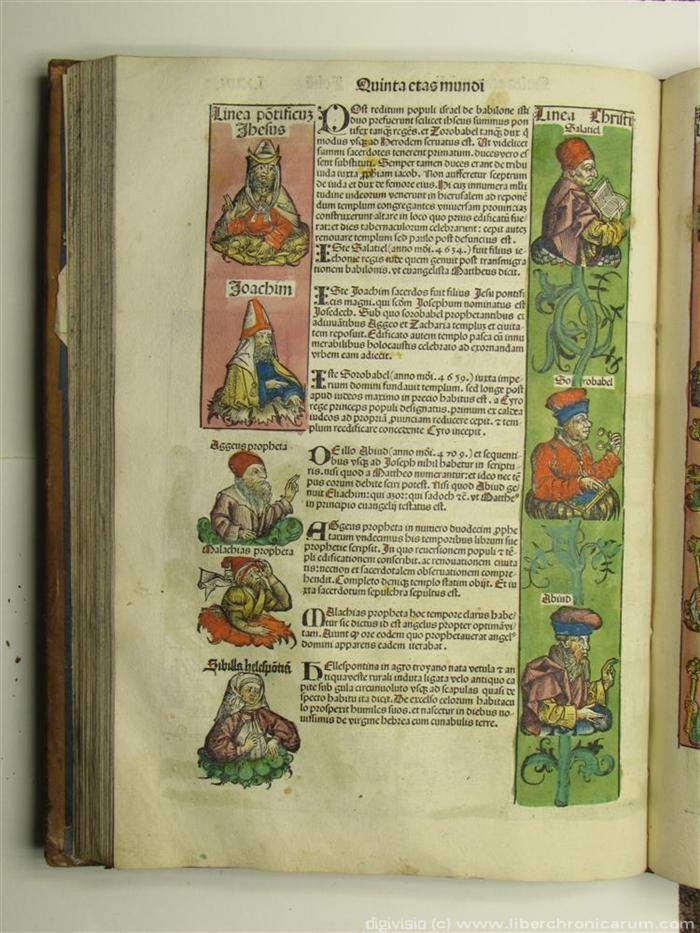 Quinta etas mundi
Linea põtificuz
Jhesus
POst reditum populi israel de babilone isti
duo prefuerunt scilicet ihseus summus pon
tifex tanqz reges. et Zorobabel tanqz dux q
modus vsqz ad Herodem seruatus est. Ut videlicet
summi sacerdotes tenerent primatum. duces vero ei
sent substituti. Semper tamen duces erant de tribu
iuda iuxta ꝓphiam iacob. Non aufferetur sceptrum
de iuda et dux de femore eius. Hi cuz innumera mlti
tudine iudeorum venerunt in hierusalem ad reponē
dum templum congregantes vniuersam prouinciaz
construxerunt altare in loco quo prius edificatū fue
rat: et dies tabernaculorum celebrarunt: cepit autez
renouare templum sed paulo post defunctus est.
ISte Salatiel (anno mōi. 4634.) fuit filius ie
chonie regis iude quem genuit post transmigra
tionem babilonis. vt euangelista Mattheus dicit.
Linea Christi
Salatiel
Joachim
ISte Joachim sacerdos fuit filius Jesu pontifi
cis magni. qui scōm Josephum nominatus est
Josedech. Sub quo sorobabel prophetantibus et
adiuuātibus Aggeo et Zacharia templuz et ciuita
tem reposuit. Edificato autem templo pasca cū innu
merabilibus holocaustis celebrato ad exornandam
vrbem eam adiecit.
ISte Sorobabel (anno mōi. 4659.) iuxta impe
rium domini fundauit templum. sed longe post
apud iudeos maximo in precio habitus est. a Cyro
rege princeps populi designatus. primum ex caldea
iudeos ad propriā ꝓuinciam reducere cepit. & tem
plum reedificare concedente Cyro incepit.
Sorobabel
Aggeus propheta
DE illo Abiud (anno mōi. 4709.) et sequenti
bus vsqz ad Joseph nihil habetur in scriptu
ris. nisi quod a Mattheo numerantur: et ideo nec tē
pus eorum debite sciri potest. Nisi quod Abiud ge
nuit Eliachim: qui azor: qui sadoch &c̄. vt Matthe⁹
in principio euangelij testatus est.
Malachias propheta
AGgeus propheta in numero duodecim ꝓphe
tarum vndecimus bis temporibus librum sue
prophetie scripsit. In quo reuersionem populi & tē
pli edificationem conscribit. ac renouationem ciuita
tis: necnon et sacerdotalem obseruationem compre
hendit. Completo deniqz templo statim obijt. Et iu
xta sacerdotum sepulchra sepultus est.
Abiud
MAlachias propheta hoc tempore clarus habe
tur sic dictus id est angelus propter optimā vi
tam. Aiunt ꝙ ore eodem quo prophetauerat angel⁹
domini apparens eadem iterabat.
Sibilla helespōtia
HEllespontina in agro troyano nata vetula & an
tiqua veste rurali induta ligata velo antiquo ca
pite sub gula circumuoluto vsqz ad scapulas quasi de
specto habitu ita dicit. De excelso celorum habitacu
lo prospexit humiles suos. et nascetur in diebus no
uissimis de virgine hebrea cum cunabulis terre.
digivisio (c) www.liberchronicarum.com